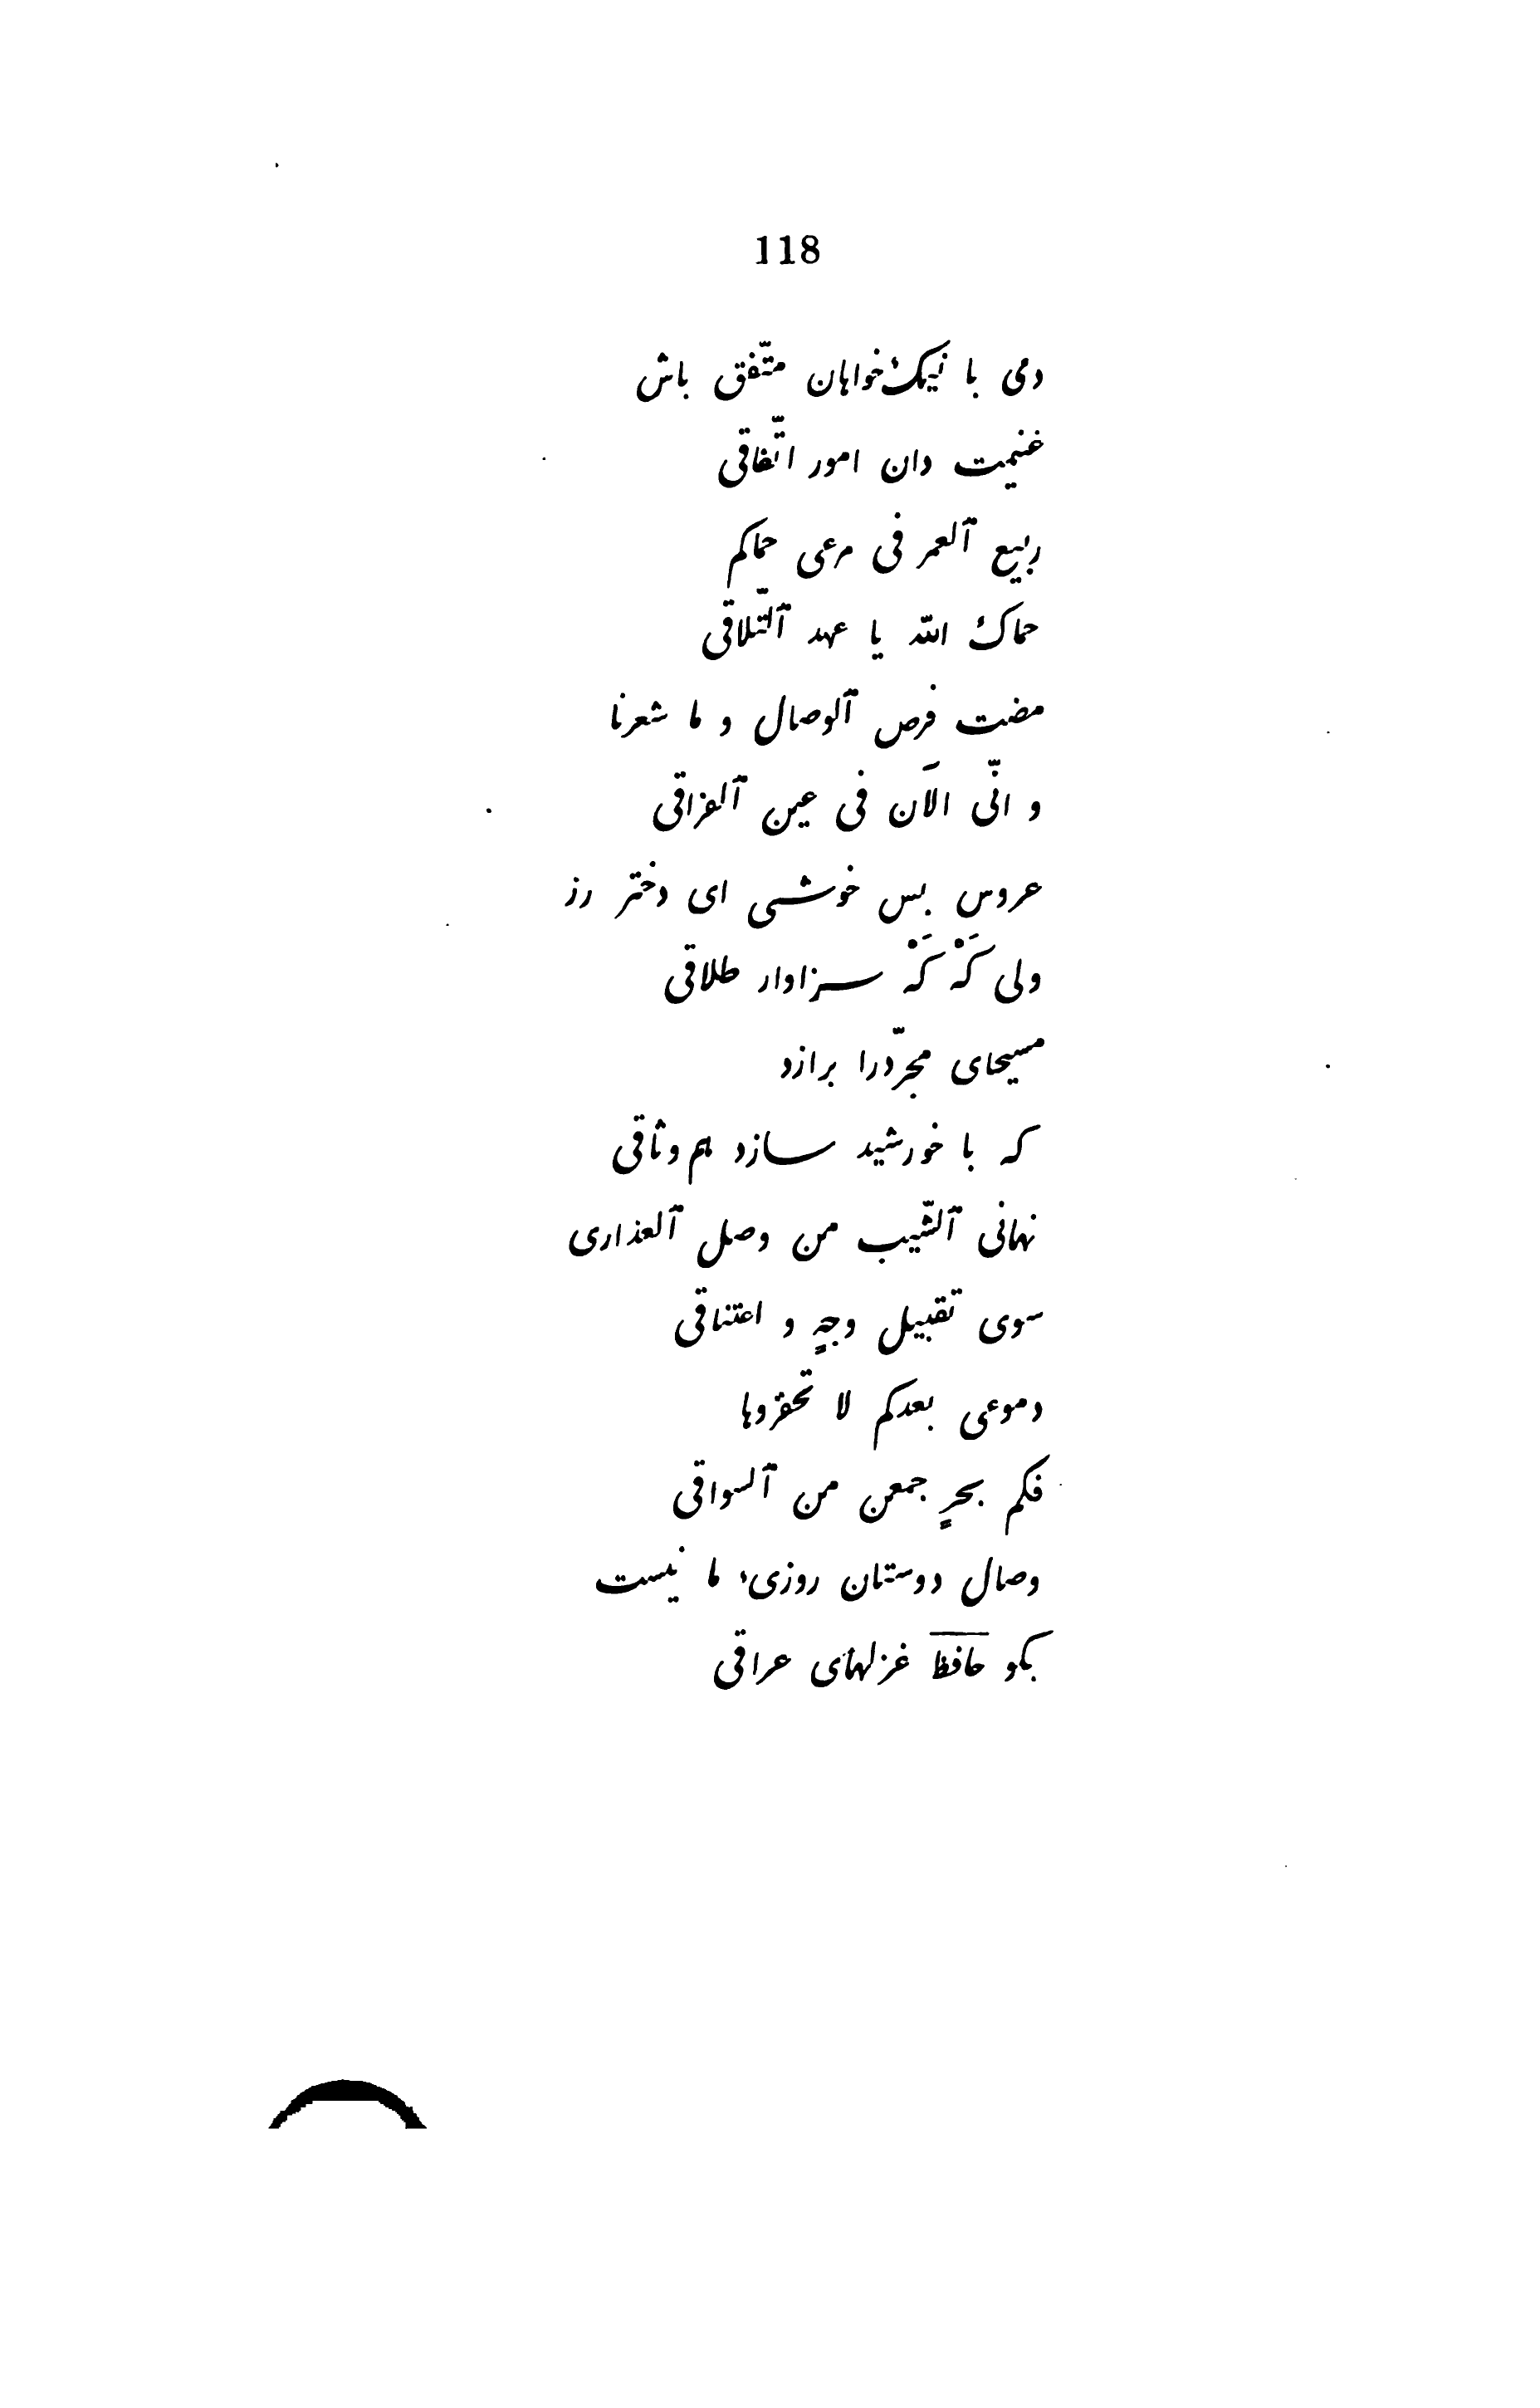 118
دمی با نیک‌خواهان متّفق باش
غنیمت دان امور اتّفاقی
ربیع ٱلعمر فی مرعی حماکم
حماک الله یا عهد ٱلتّلاقی
مضت فرص ٱلوصال و ما شعرنا
و انّی الآن فی عین ٱلفراقی
عروس بس خوشی ای دختر رز
ولی گه گه سزاوار طلاقی
مسیحای مجرّدرا برازد
که با خورشید سازد هم وثاقی
نهانی ٱلشّیب من وصل ٱلعذاری
سوی تقبیل وجهٍ و اعتناقی
دموعی بعدکم لا تحقروها
فکم بحرٍ جمعن من ٱلسواقی
وصال دوستان روزیٔ ما نیست
بگو حافظ غزلهای عراقی